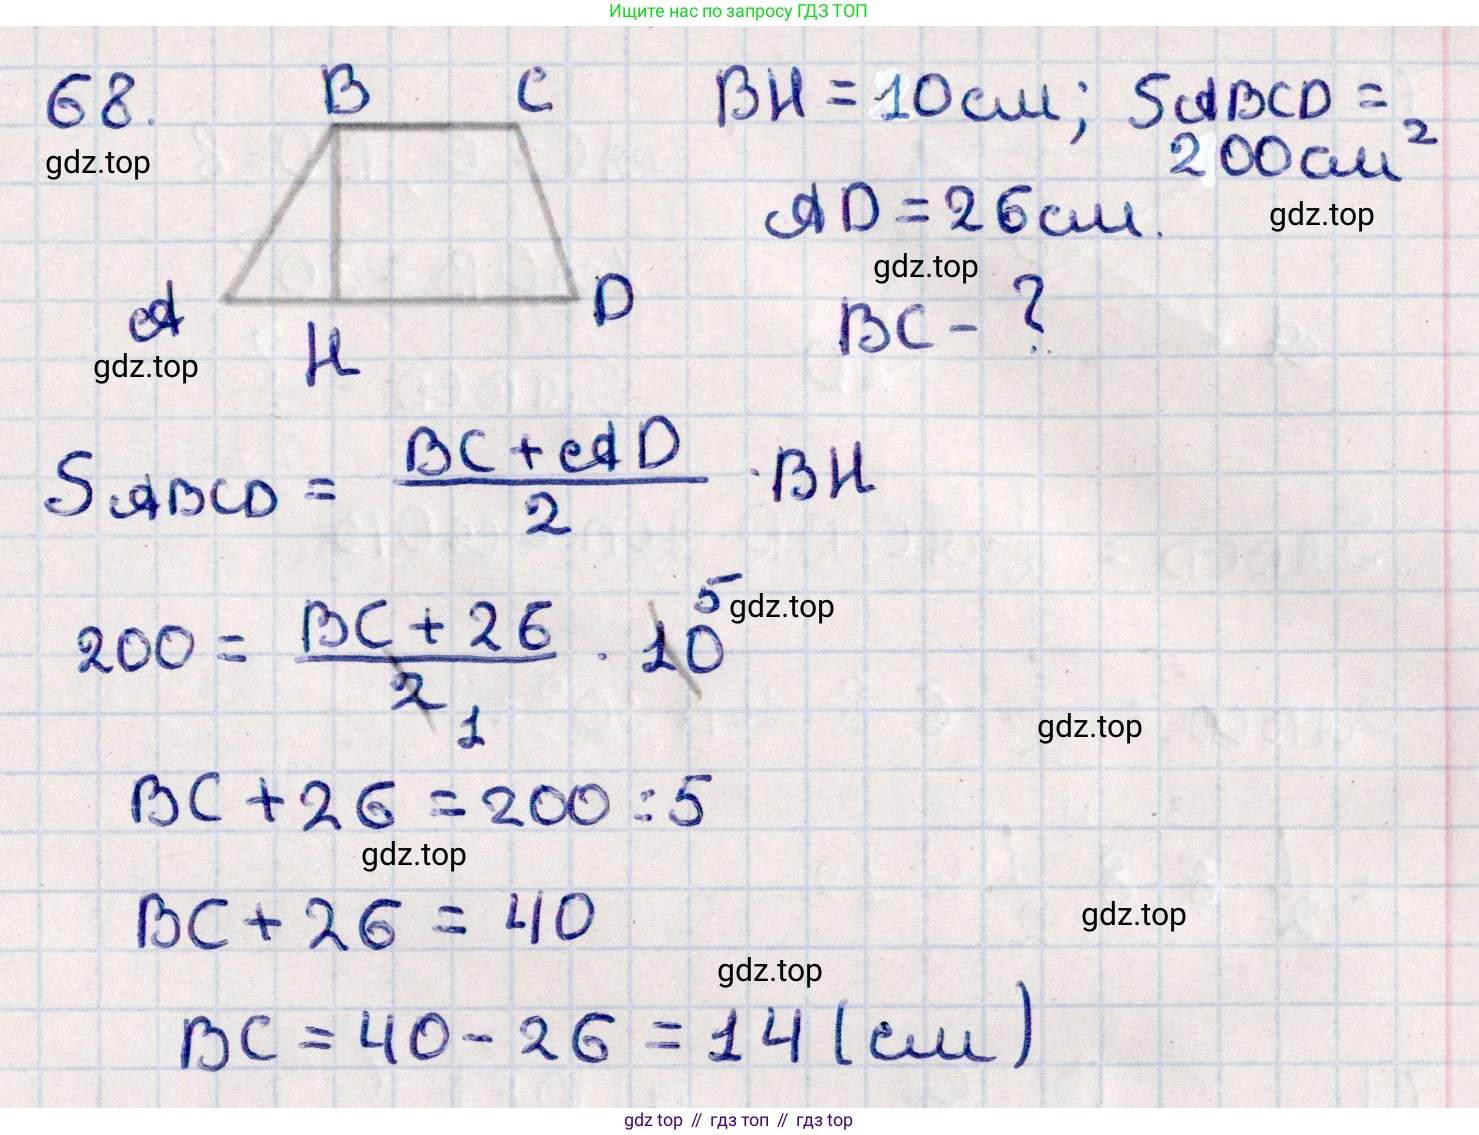 Ищите нас по запросу ГДЗ ТОП
68.
B C
BH = 10 см; SABCD =
200 см²
gdz.top
AD = 26 см.
gdz.top
gdz.top
BC - ?
A H D
gdz.top
S ABCD = BC + AD / 2 · BH
200 = BC + 26 / 2 1 · 10 5
gdz.top
gdz.top
BC + 26 = 200 : 5
gdz.top
BC + 26 = 40
gdz.top
gdz.top
BC = 40 - 26 = 14 (см)
gdz.top // гдз топ // гдз top